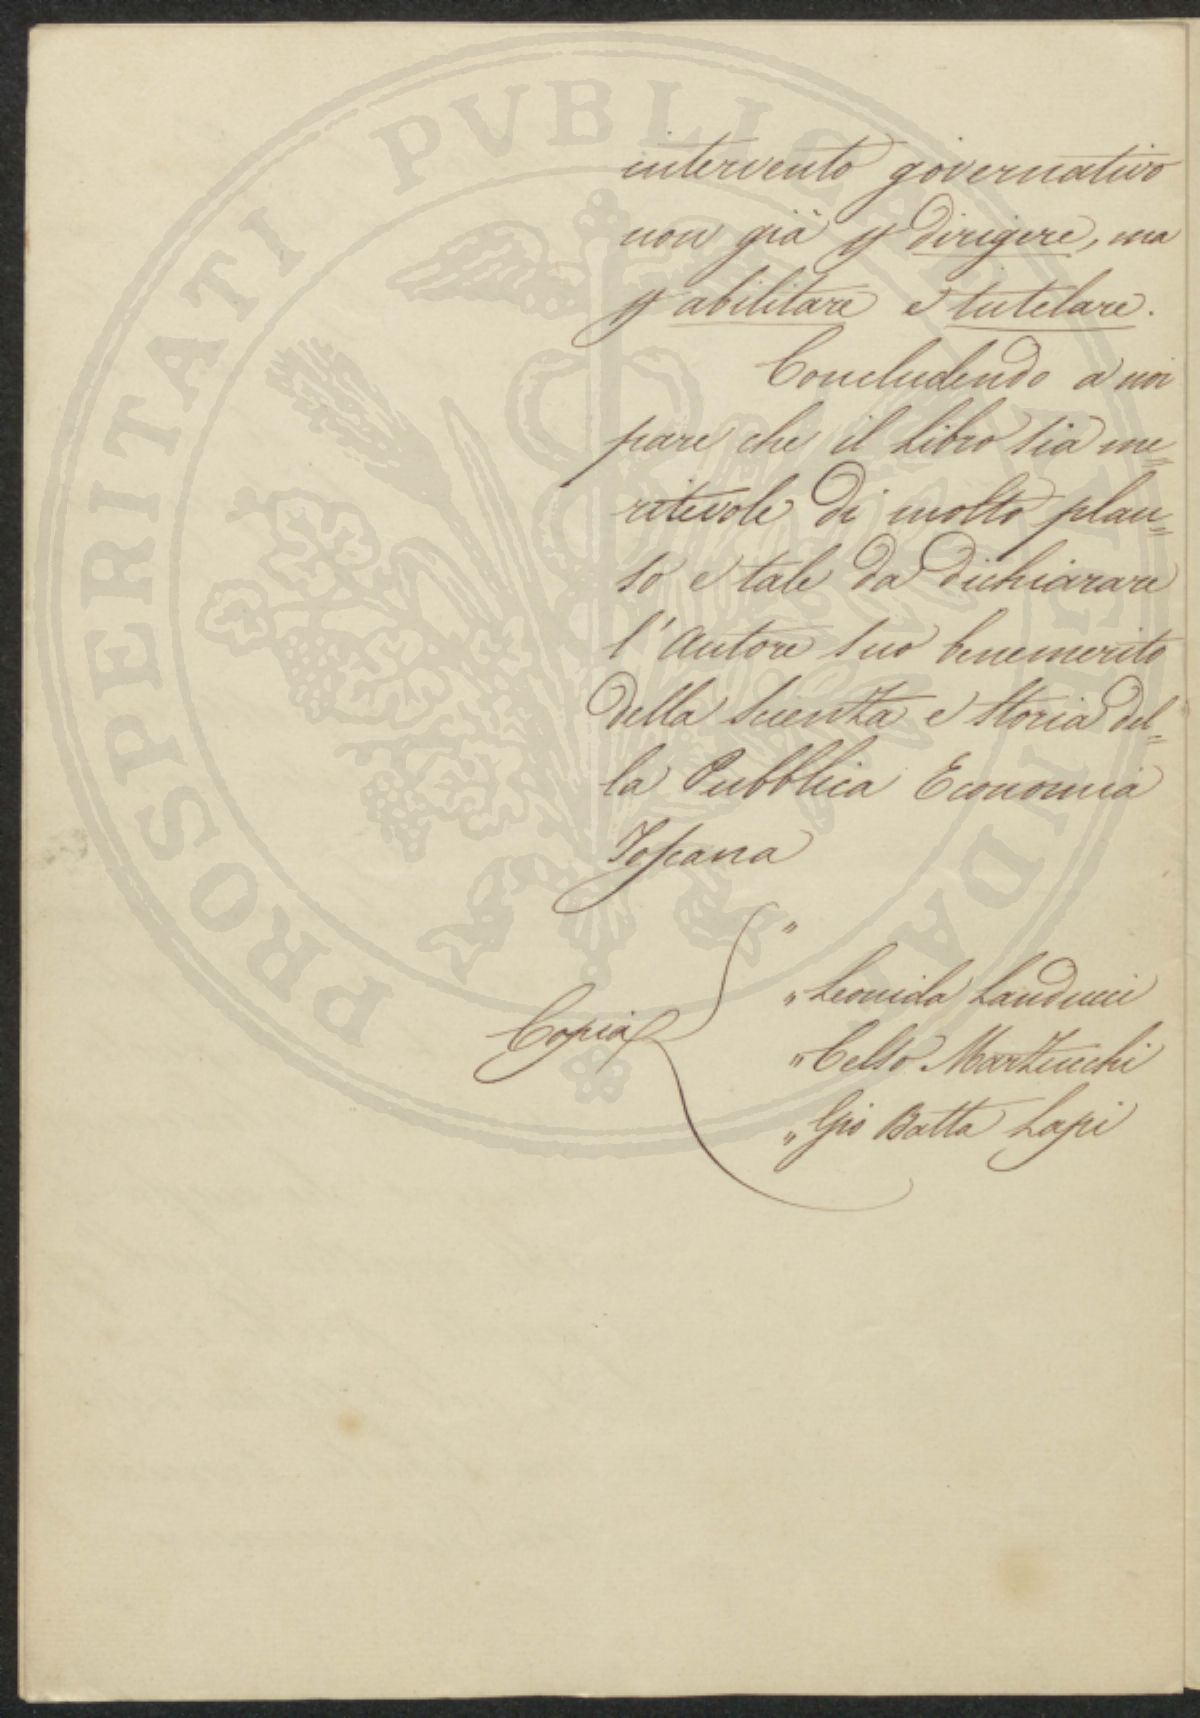 intervento governativo
non già p dirigere, ma
p abilitare e tutelare.
Concludendo a noi
pare che il libro sia me=
ritevole di molto plau=
so e tale da dichiarare
l'Autore suo benemerito
della Scienza e Storia del=
la Pubblica Economia
Toscana
"
Copia
" Leonida Landucci
" Celso Marzucchi
" Gio Batta Lapi
PROSPERITATI PVBLICAE AVGENDAE